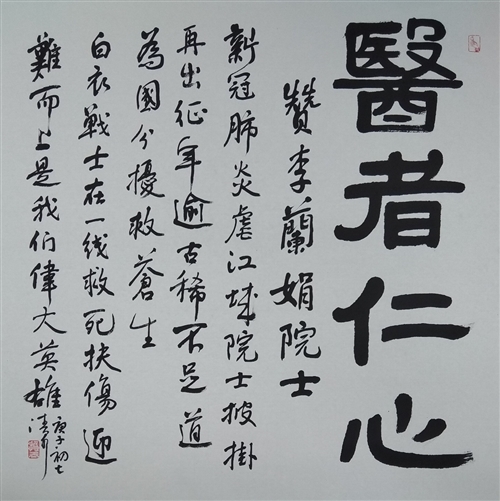 醫者仁心
贊李蘭娟院士
新冠肺炎虐江城院士披掛
再出征年逾古稀不足道
為國分擾救蒼生
白衣戰士在一线救死扶傷迎
難而上是我们偉大英雄
庚子初七